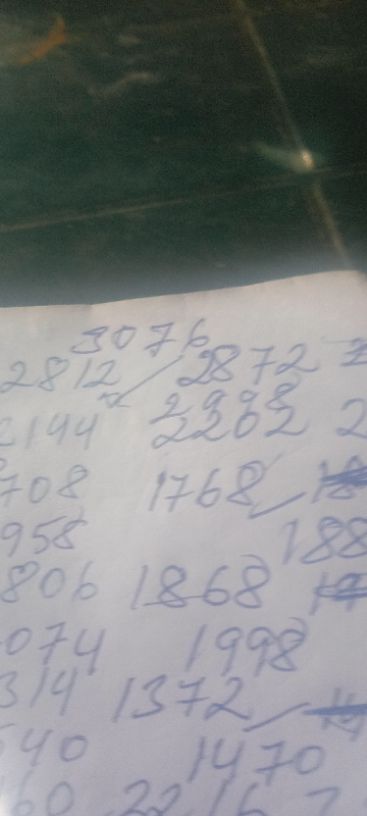 3076
2812 2872
2998
2144 2202 2
708 1768
958 188
806 1868
074 1998
314 1372
540 1470
160 2216